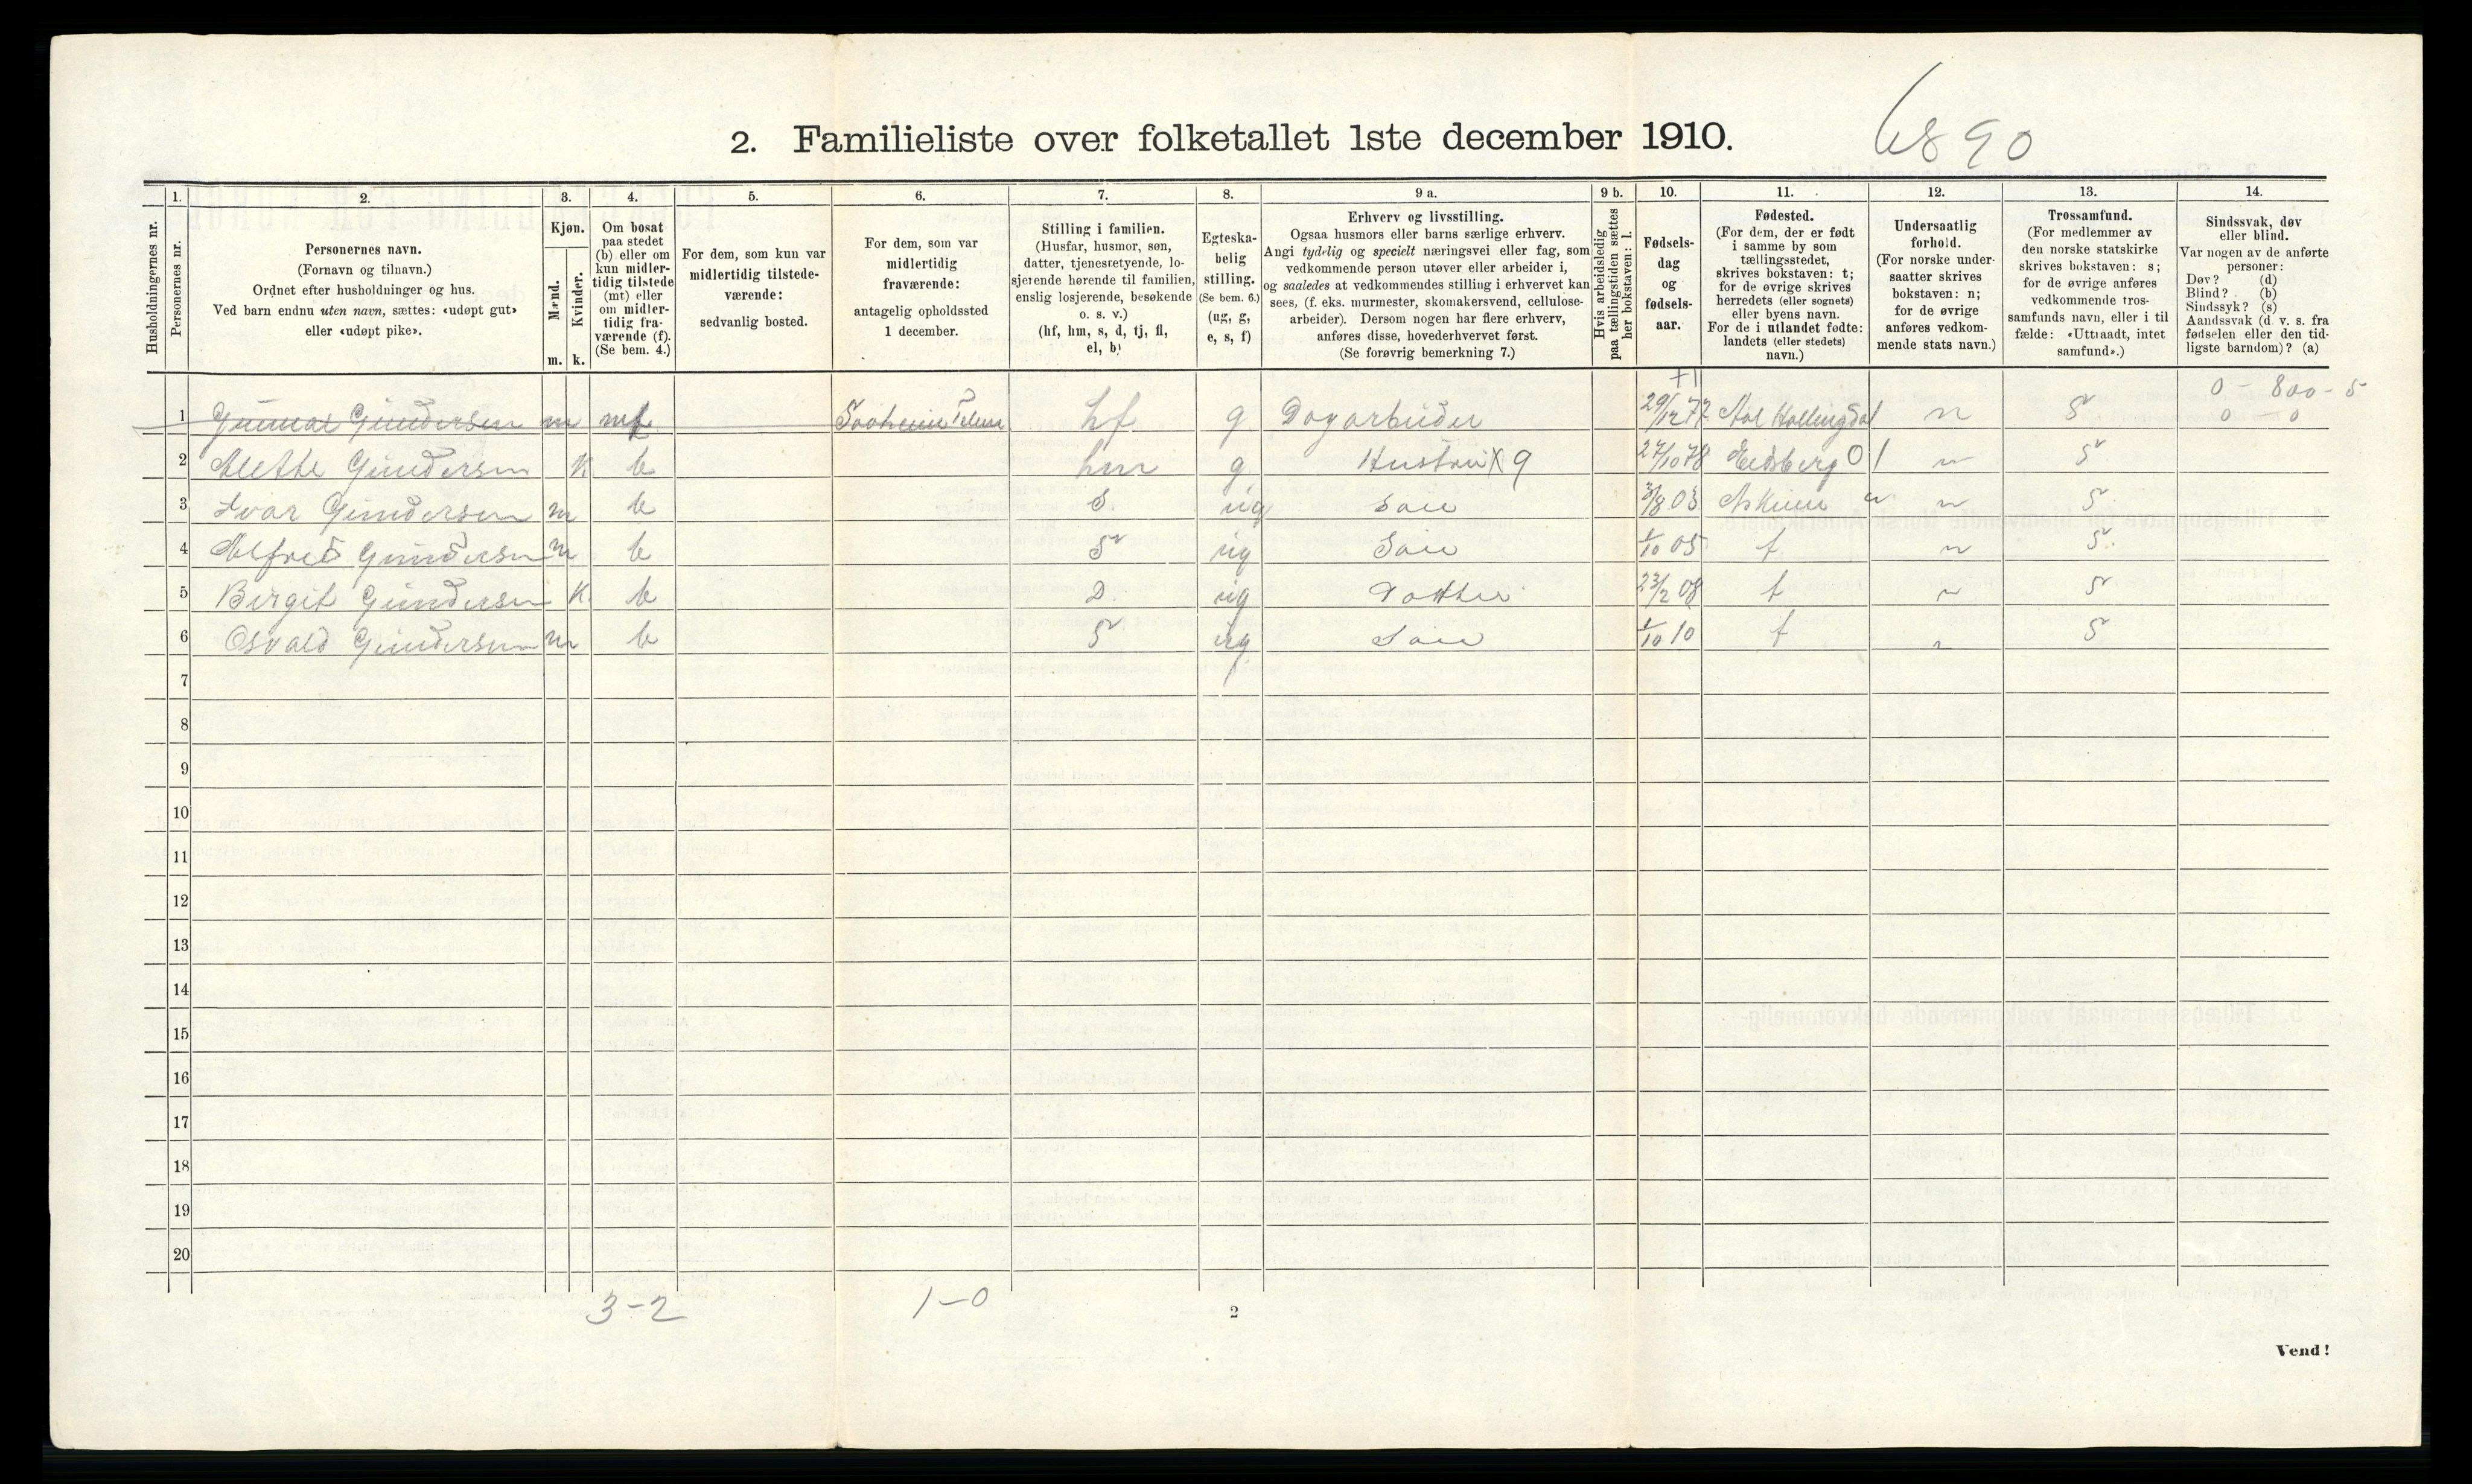 6890
2. Familieliste over folketallet 1ste december 1910.
Husholdningernes nr.
1. Personernes nr.
2. Personernes navn.
(Fornavn og tilnavn.)
Ordnet efter husholdninger og hus.
Ved barn endnu uten navn, sættes: «udøpt gut»
eller «udøpt pike».
3. Kjøn.
Mænd. m.
Kvinder. k.
4. Om bosat
paa stedet
(b) eller om
kun midler-
tidig tilstede
(mt) eller
om midler-
tidig fra-
værende (f).
(Se bem. 4.)
5. For dem, som kun var
midlertidig tilstede-
værende:
sedvanlig bosted.
6. For dem, som var
midlertidig
fraværende:
antagelig opholdssted
1 december.
7. Stilling i familien.
(Husfar, husmor, søn,
datter, tjenestetyende, lo-
sjerende hørende til familien,
enslig losjerende, besøkende
o. s. v.)
(hf, hm, s, d, tj, fl,
el, b)
8. Egteska-
belig
stilling.
(Se bem. 6.)
(ug, g,
e, s, f)
9 a. Erhverv og livsstilling.
Ogsaa husmors eller barns særlige erhverv.
Angi tydelig og specielt næringsvei eller fag, som
vedkommende person utøver eller arbeider i,
og saaledes at vedkommendes stilling i erhvervet kan
sees, (f. eks. murmester, skomakersvend, cellulose-
arbeider). Dersom nogen har flere erhverv,
anføres disse, hovederhvervet først.
(Se forøvrig bemerkning 7.)
9 b. Hvis arbeidsledig
paa tællingstiden sættes
her bokstaven: l.
10. Fødsels-
dag
og
fødsels-
aar.
11. Fødested.
(For dem, der er født
i samme by som
tællingsstedet,
skrives bokstaven: t;
for de øvrige skrives
herredets (eller sognets)
eller byens navn.
For de i utlandet fødte:
landets (eller stedets)
navn.)
12. Undersaatlig
forhold.
(For norske under-
saatter skrives
bokstaven: n;
for de øvrige
anføres vedkom-
mende stats navn.)
13. Trossamfund.
(For medlemmer av
den norske statskirke
skrives bokstaven: s;
for de øvrige anføres
vedkommende tros-
samfunds navn, eller i til
fælde: «Uttraadt, intet
samfund».)
14. Sindssvak, døv
eller blind.
Var nogen av de anførte
personer:
Døv? (d)
Blind? (b)
Sindssyk? (s)
Aandssvak (d. v. s. fra
fødselen eller den tid-
ligste barndom)? (a)
0 - 800 - 5
0 - 0
1 Gunnar Gundersen m Saaheim Telem hf g Dagarbeider 29/12 77 Aal Hallingdal n S
2 Alethe Gundersen K b hm g Hustru X 9 27/10 78 Eidsberg 01 n S
3 Ivar Gundersen m b S ug Søn 3/8 03 Askim n S
4 Alfred Gundersen m b S ug Søn 1/10 05 t n S
5 Birgit Gundersen K. b D ug Datter 23/2 08 t n S
6 Osvald Gundersen m b S ug Søn 1/10 10 t n S
7
8
9
10
11
12
13
14
15
16
17
18
19
20
3-2 1-0
2
Vend!